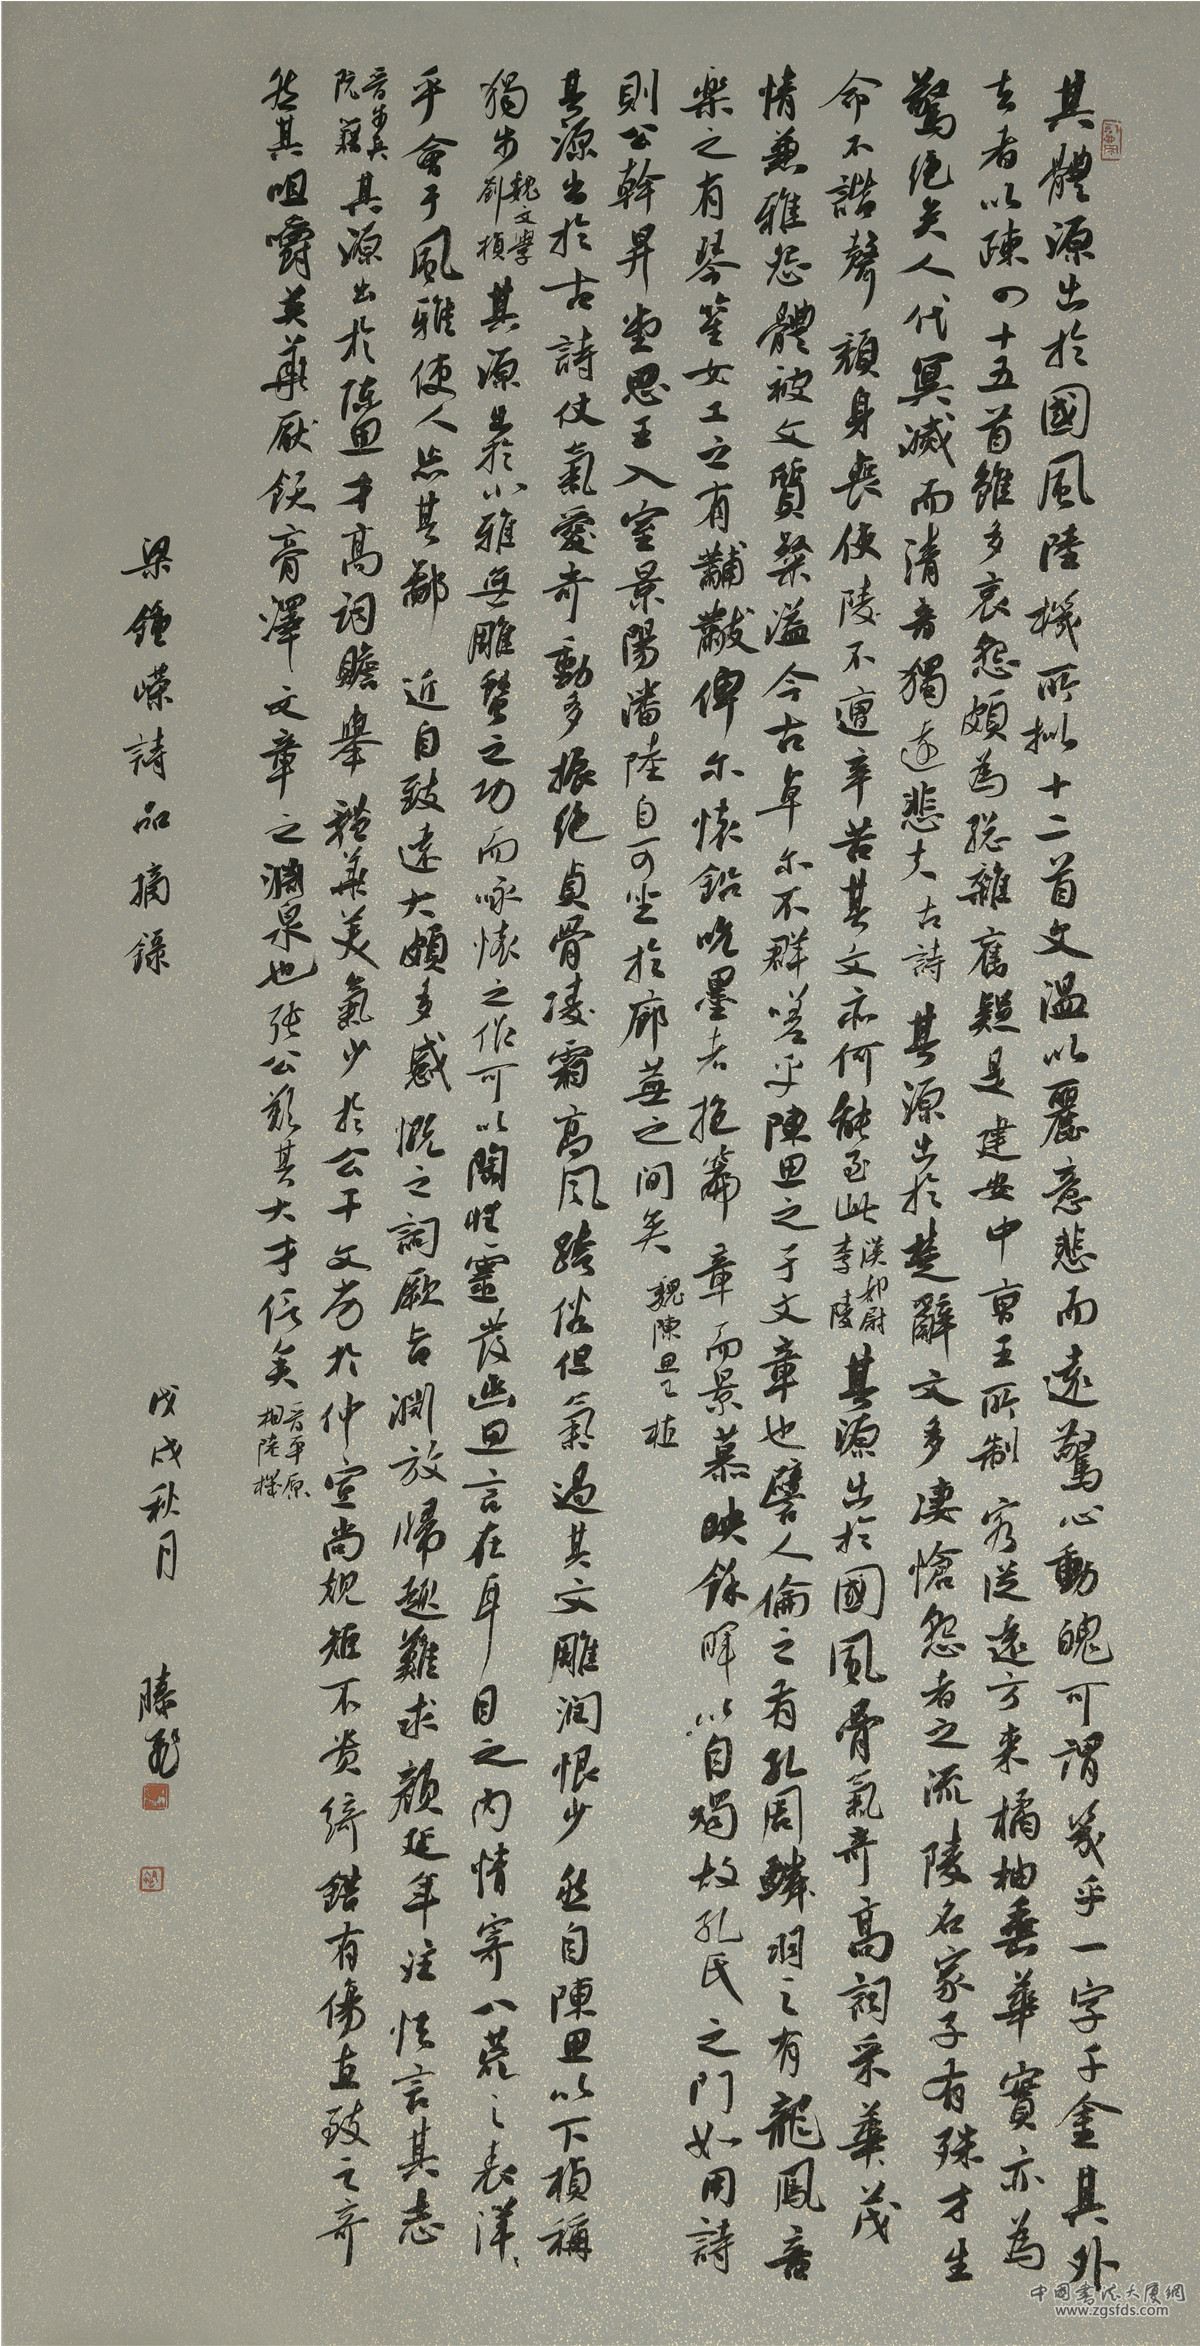 其體源出於國風陸機所擬十二首文溫以麗意悲而遠驚心動魄可謂幾乎一字千金其外
去者以陳四十五首雖多哀怨頗為總雜舊疑是建安中曹王所制客從遠方來橘柚垂華實亦為
驚絕矣人代冥滅而清音獨遠悲夫 古詩 其源出於楚辭文多淒愴怨者之流陵名家子有殊才生
命不諧聲頹身喪使陵不遭辛苦其文亦何能至此 漢都尉李陵 其源出於國風骨氣奇高詞采華茂
情兼雅怨體被文質粲溢今古卓尔不群嗟乎陳思之于文章也譬人倫之有孔周鱗羽之有龍鳳音
樂之有琴笙女工之有黼黻俾尔懷鉛吮墨者抱篇章而景慕映餘暉以自燭故孔氏之門如用詩
則公幹昇堂思王入室景陽潘陸自可坐於廊蕪之间矣 魏陳思王植
其源出於古詩仗氣愛奇動多振絕貞骨凌霜高风跨俗但氣過其文雕润恨少然自陳思以下楨稱
獨步 魏文學劉楨 其源出於小雅無雕蟲之功而咏懷之作可以陶性靈發幽思言在耳目之內情寄八荒之表洋洋
乎會于風雅使人忘其鄙近自致遠大頗多感慨之詞厥旨淵放歸趣難求顏延年注怯言其志
晉步兵阮籍 其源出於陈思才高詞贍舉體華美氣少於公干文劣於仲宣尚規矩不贵綺錯有傷直致之奇
然其咀嚼英華厭飫膏澤文章之淵泉也张公歎其大才信矣 晉平原相陸機
梁鍾嶸詩品摘錄
戊戌秋月
中国书法大厦網
www.zgsfds.com